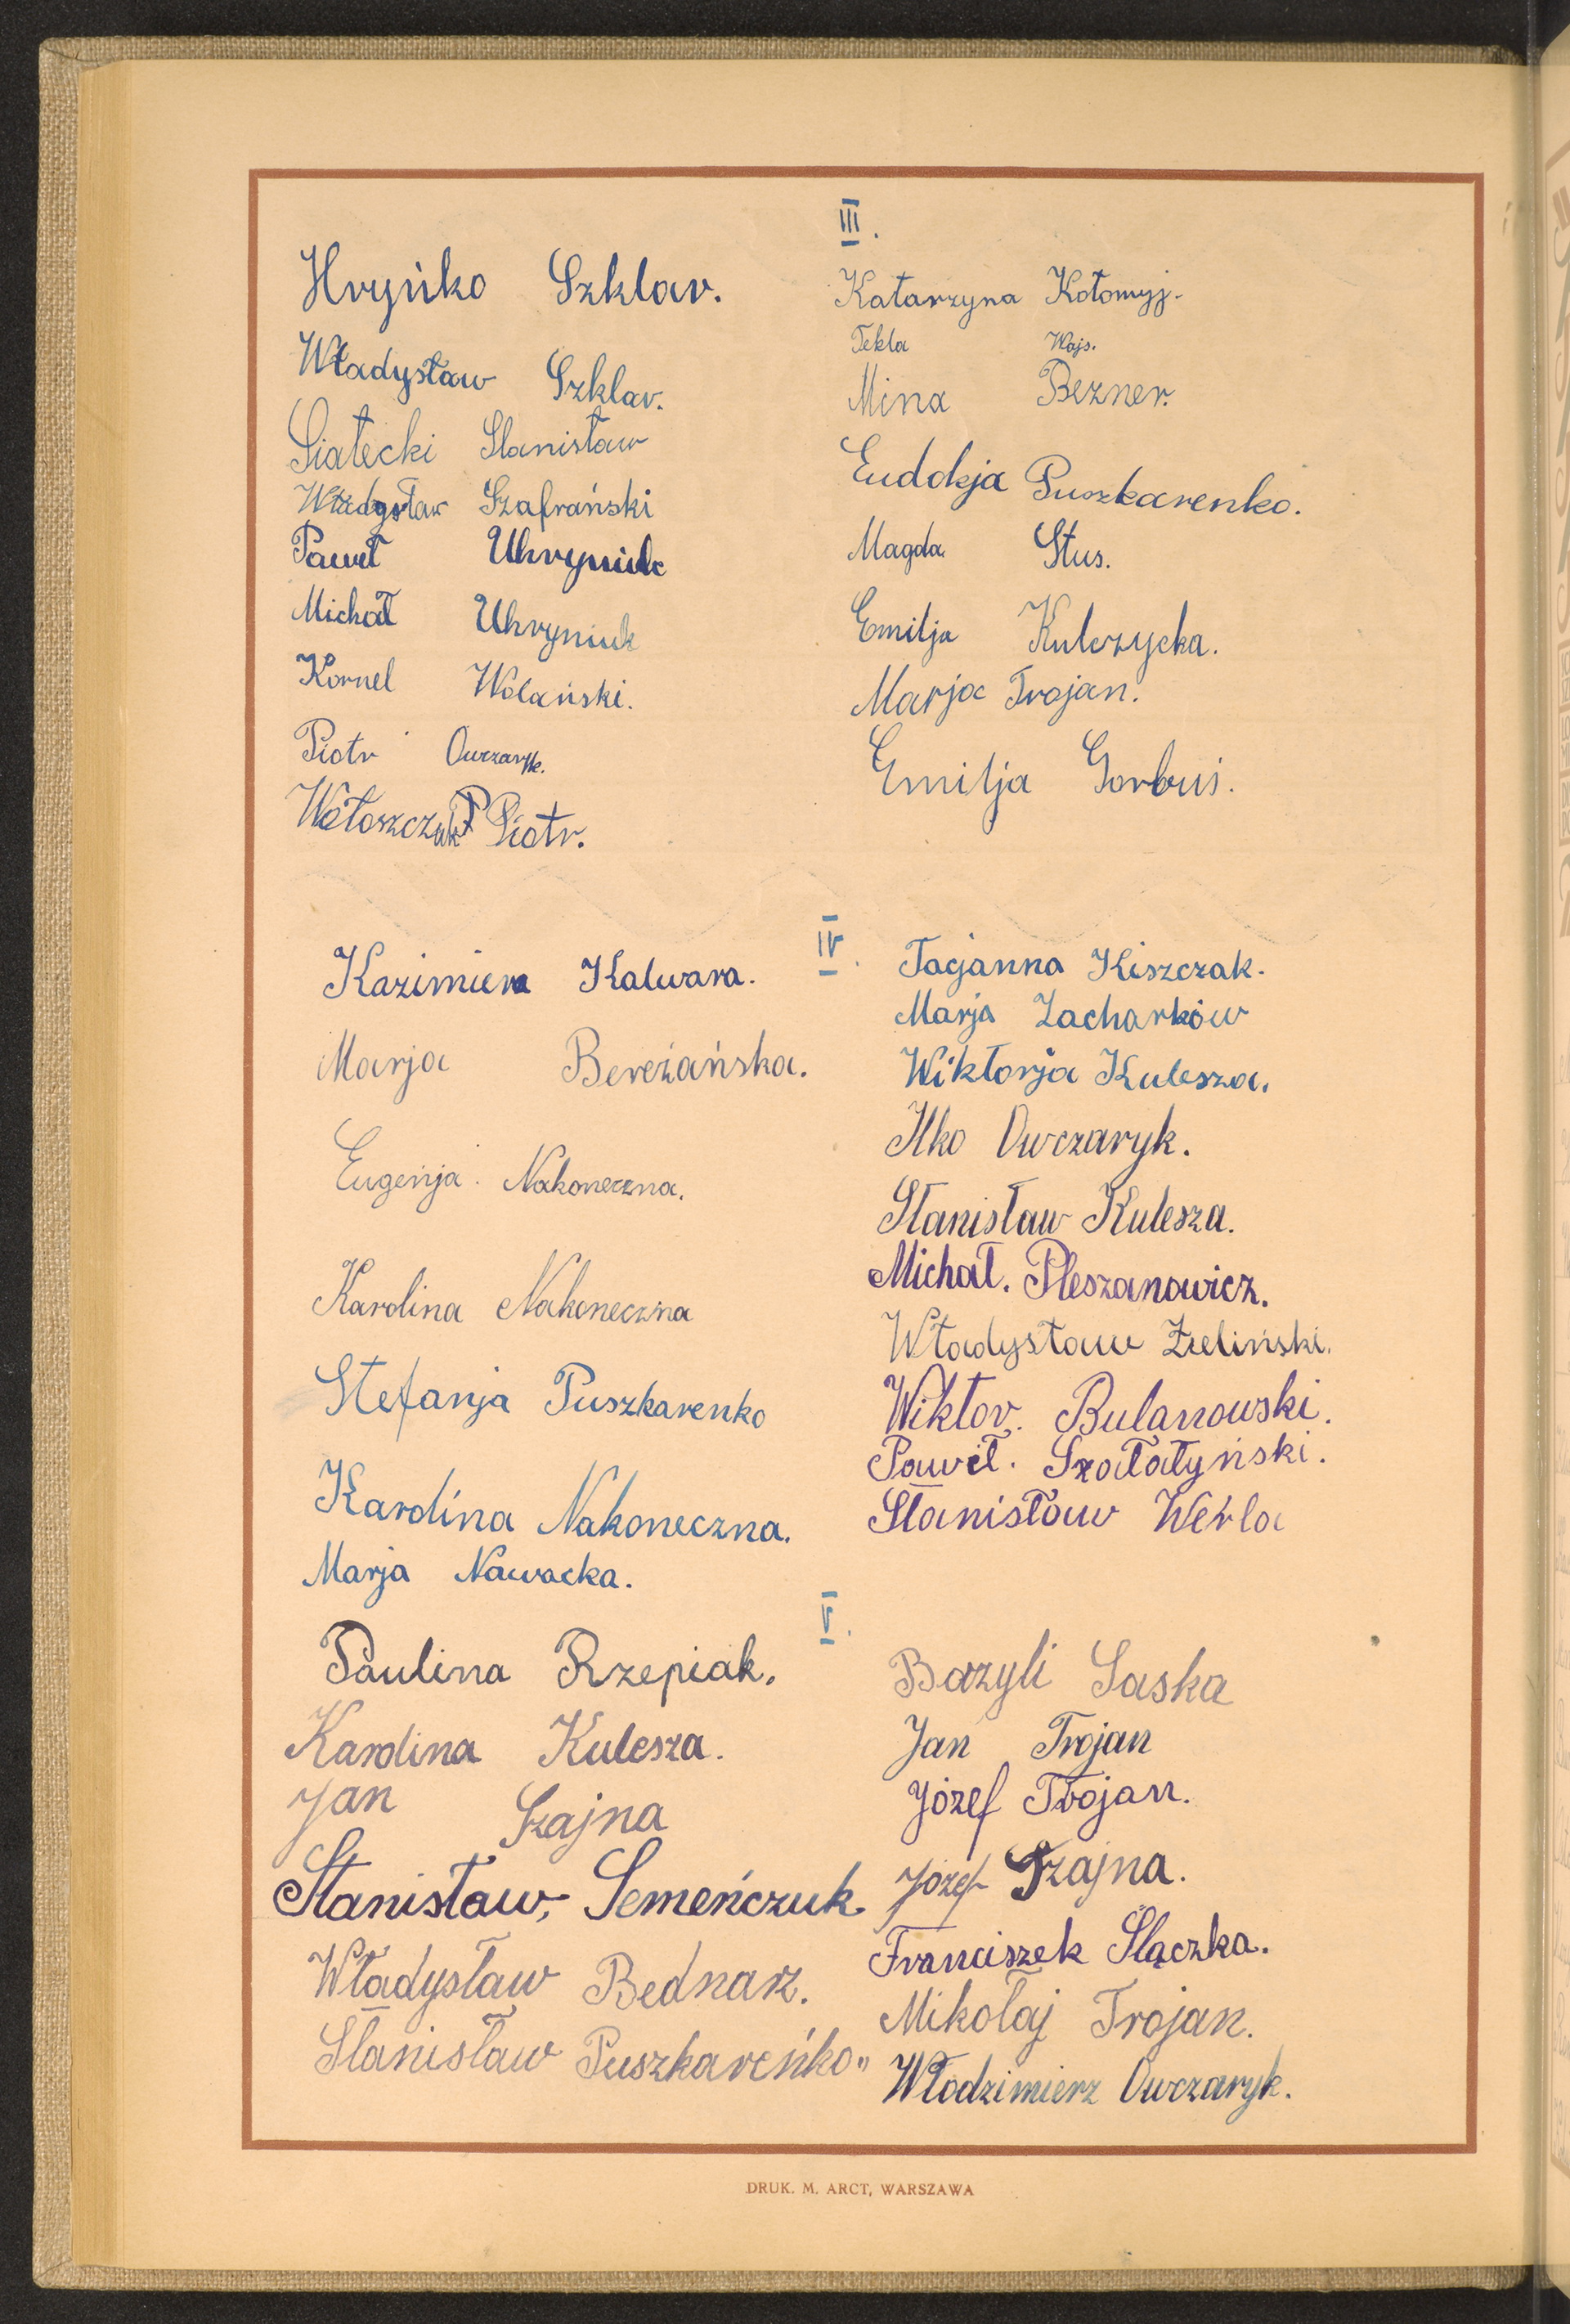 III.
Hryńko Szklar.
Władysław Szklar.
Siatecki Stanisław
Władysław Szafrański
Paweł Uhryniuk
Michał Uhryniuk
Kornel Wolański.
Piotr Owczaryk.
Wołoszczuk Piotr.
Katarzyna Kołomyj.
Tekla Wajs.
Mina Bezner.
Eudokja Puszkarenko.
Magda Stus.
Emilja Kulczycka.
Marja Trojan.
Emilja Gorbuś.
IV.
Kazimiera Kalwara.
Marja Bereżańska.
Eugenja Nakoneczna.
Karolina Nakoneczna
Stefanja Puszkarenko
Karolina Nakoneczna.
Marja Nawacka.
Tacjanna Kiszczak.
Marja Zacharków
Wiktorja Kulesza.
Ilko Owczaryk.
Stanisław Kulesza.
Michał. Pleszanowicz.
Władysław Zieliński.
Wiktor. Bulanowski.
Paweł. Szałatyński.
Stanisław Werla
V.
Paulina Rzepiak.
Karolina Kulesza.
Jan Szajna
Stanisław, Semeńczuk
Władysław Bednarz.
Stanisław Puszkareńko"
Bazyli Saska
Jan Trojan
Józef Trojan.
Józef Szajna.
Franciszek Ślączka.
Mikołaj Trojan.
Włodzimierz Owczaryk.
DRUK. M. ARCT, WARSZAWA